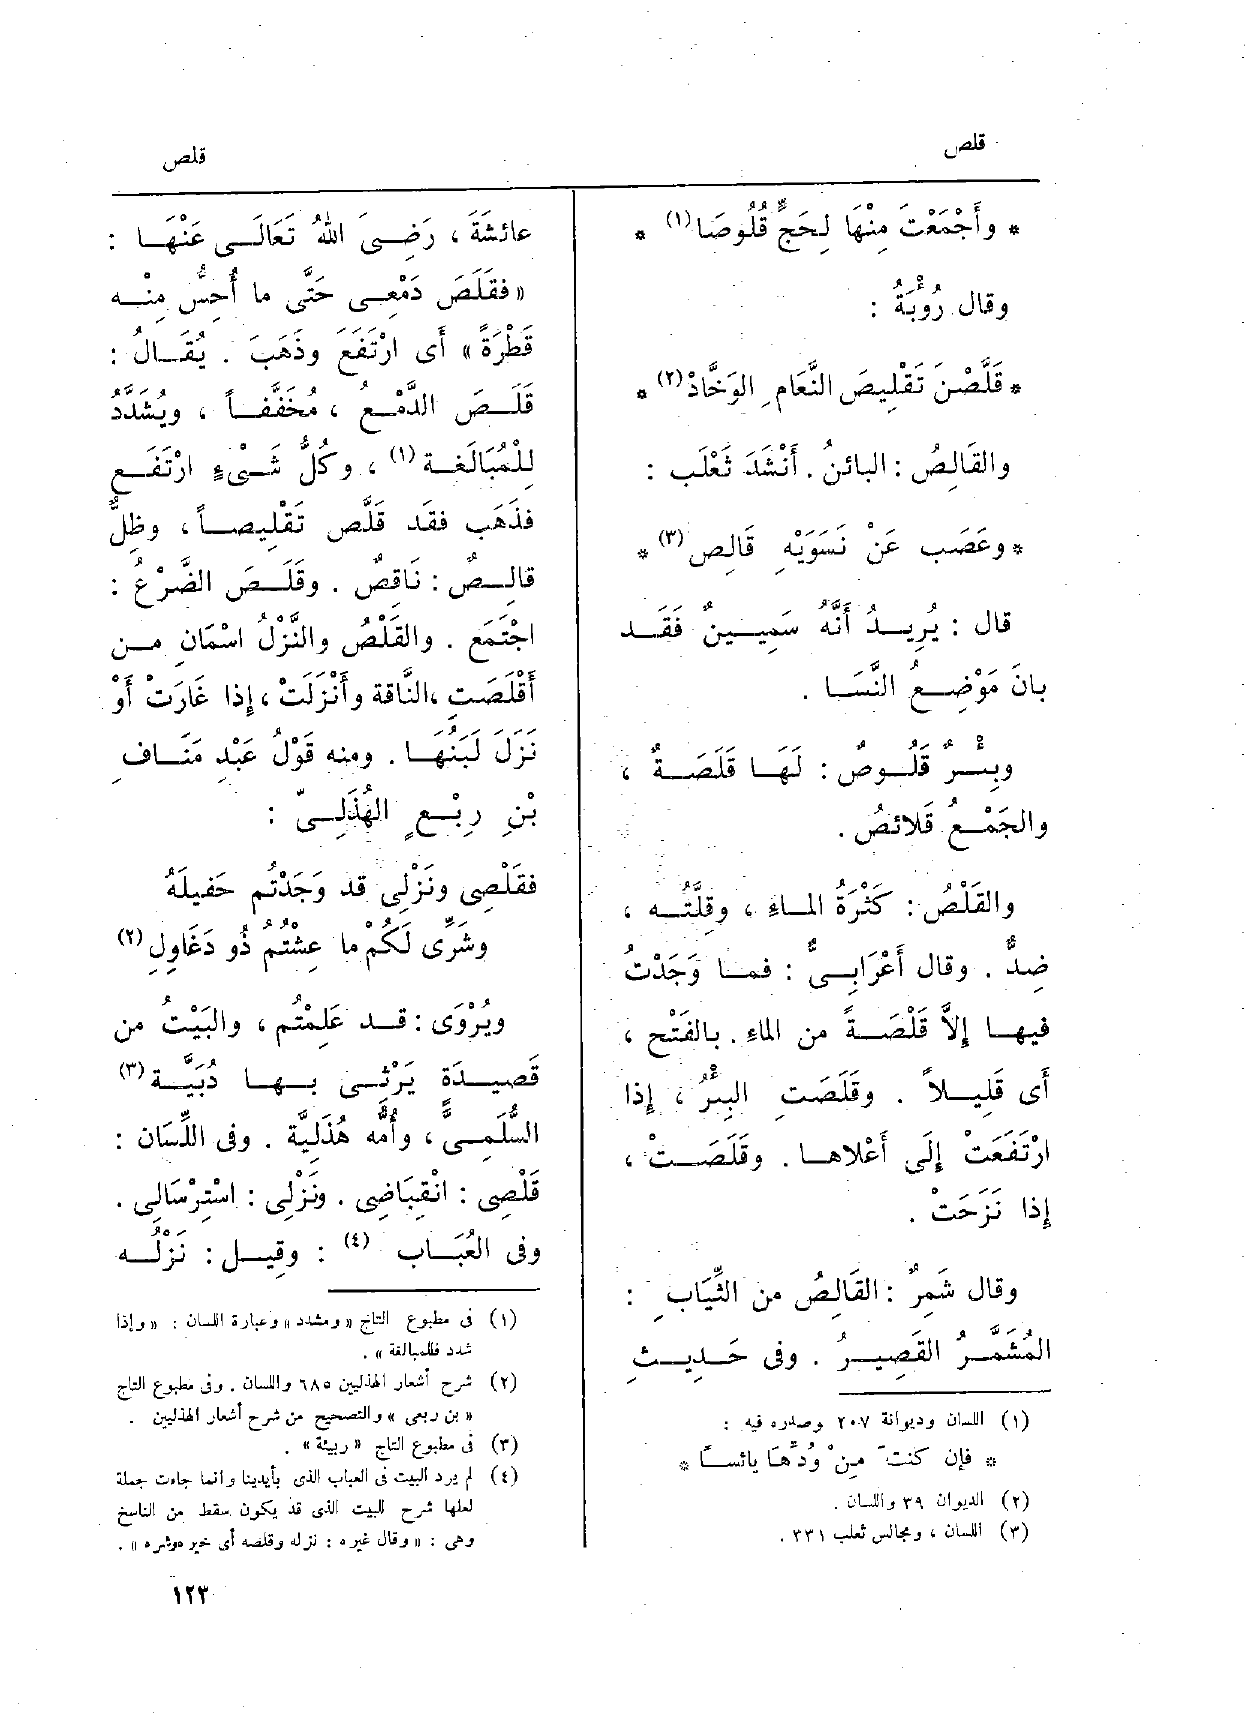 قلص
قلص
* وأَجْمَعَتْ مِنْهَا لِحَجٍّ قُلُوصَا(١) *
وقال رُوْبَةُ :
* قَلَّصْنَ تَقْلِيصَ النَّعَامِ الوَخَّاذْ(٢) *
والقَالِصُ : البائنُ . أَنْشَد ثَعْلَب :
* وعَصَب عَنْ نَسَوَيْهِ قَالِص(٣) *
قال : يُرِيــدُ أَنَّهُ سَمِيــينٌ فَقَــد
بانَ مَوْضِــعُ النَّسَــا .
وبِئــرٌ قَلُــوصٌ : لَهَــا قَلَصَــةٌ ،
والجَمْــعُ قَلائصُ .
والقَلْصُ : كَثْرَةُ المــاءِ ، وقِلَّتــه ،
ضِدٌّ . وقال أَعْرَابِــىٌّ : فمــا وَجَدْتُ
فيهــا إِلاَّ قَلْصَــةً من الماءِ . بالفَتْحِ ،
أَى قَلِيــلاً . وقَلَصَتِ البِئْرُ ، إِذا
ارْتَفَعَتْ إِلَى أَعْلاهــا . وقَلَصَــتْ ،
إِذا نَزَحَتْ .
وقال شَمِرٌ : القَالِصُ من الثِّيَابِ :
المُشَمَّــرُ القَصِيــرُ . وفى حَــدِيــث
(١) اللسان وديوانة ٢٠٧ وصدره فيه :
* فإن كنت مِنْ وُدِّهَا يائســاً *
(٢) الديوان ٣٩ واللسان .
(٣) اللسان ، ومجالس ثعلب ٣٣١ .
عائشَةَ ، رَضِــىَ اللهُ تَعَالَــى عَنْهَــا :
« فقَلَصَ دَمْعِــى حَتَّى ما أُحِسُّ مِنْــه
قَطْرَةً » أَى ارْتَفَعَ وذَهَبَ . يُقَــالُ :
قَلَــصَ الدَّمْــعُ ، مُخَفَّفــاً ، ويُشَدَّدُ
لِلْمُبَالَغــة(١) ، وكُلُّ شَــىْءٍ ارْتَفَــع
فذَهَب فقَد قَلَّص تَقْلِيصــاً ، وظِلٌّ
قالِــصٌ : نَاقصٌ . وقَلَــصَ الضَّرْعُ :
اجْتَمَع . والقَلْصُ والنَّزْلُ اسْمَانِ مــن
أَقْلَصَت ،النَّاقة وأَنْزَلَتْ ، إِذا غَارَتْ أَوْ
نَزَلَ لَبَنُهَــا . ومنه قَوْلُ عَبْدِ مَنَــافِ
بْنِ رِبْــعٍ الهُذَلِــىّ :
فقَلْصِى ونَزْلِى قد وَجَدْتُم حَفيلَهُ
وشَرِّى لَكُمْ ما عِشْتُمُ ذُو دَغَاوِلِ(٢)
ويُرْوَى : قــد عَلِمْتُم ، والبَيْتُ من
قَصِيــدَة يَرْثِــى بــهــا دُبَيَّــة(٣)
السُّلَمِــىَّ ، وأُمُّه هُذَلِيَّة . وفى اللِّسَان :
قَلْصِى : انْقِبَاضِى . ونَزْلِى : اسْتِرْسَالِى .
وفى العُبَــاب (٤) : وقيــل : نَزْلُــه
(١) فى مطبوع التاج « ومشدد » وعبارة اللسان : « وإذا
شدد فللمبالغة » .
(٢) شرح أشعار الهذليين ٦٨٥ واللسان . وفى مطبوع التاج
« بن ربعى » والتصحيح من شرح أشعار الهذليين .
(٣) فى مطبوع التاج « ربيئة » .
(٤) لم يرد البيت فى العباب الذى بأيدينا وانما جاءت جملة
لعلها شرح البيت الذى قد يكون سقط من الناسخ
وهى : « وقال غيره : نزله وقلصه أى خيره وشره » .
١٢٣